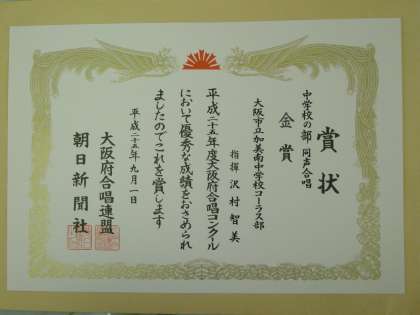 賞状
中学校の部 同声合唱
金賞
大阪市立加美南中学校コーラス部
指揮 沢村智美
平成二十五年度大阪府合唱コンクール
において優秀な成績をおさめられ
ましたのでこれを賞します
平成二十五年九月一日
大阪府合唱連盟
朝日新聞社